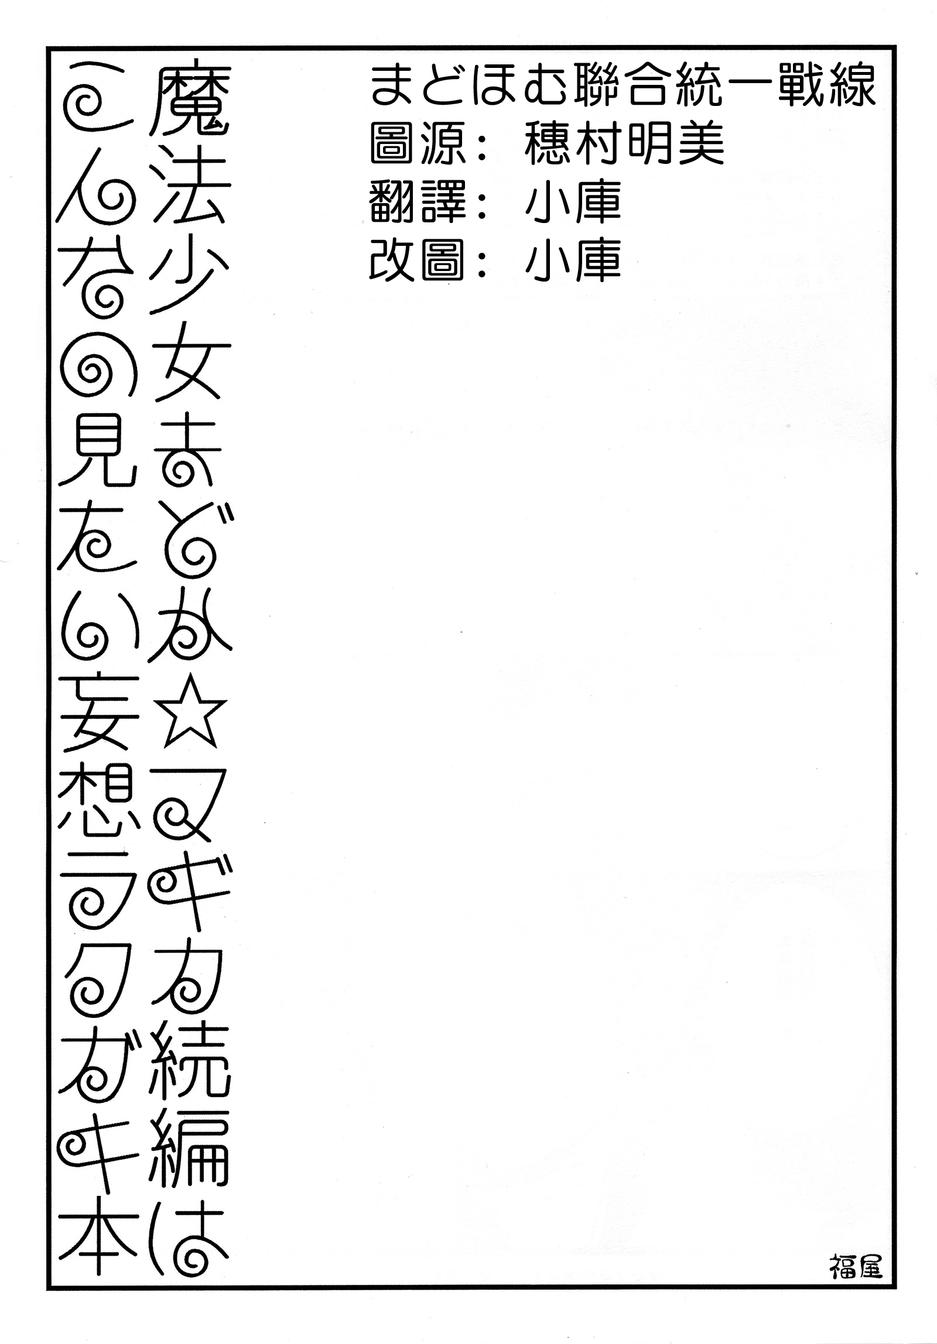 まどほむ聯合統一戰線
圖源：穗村明美
翻譯：小庫
改圖：小庫
魔法少女まどか☆マギカ続編は
こんなの見たい妄想ラクガキ本
福屋